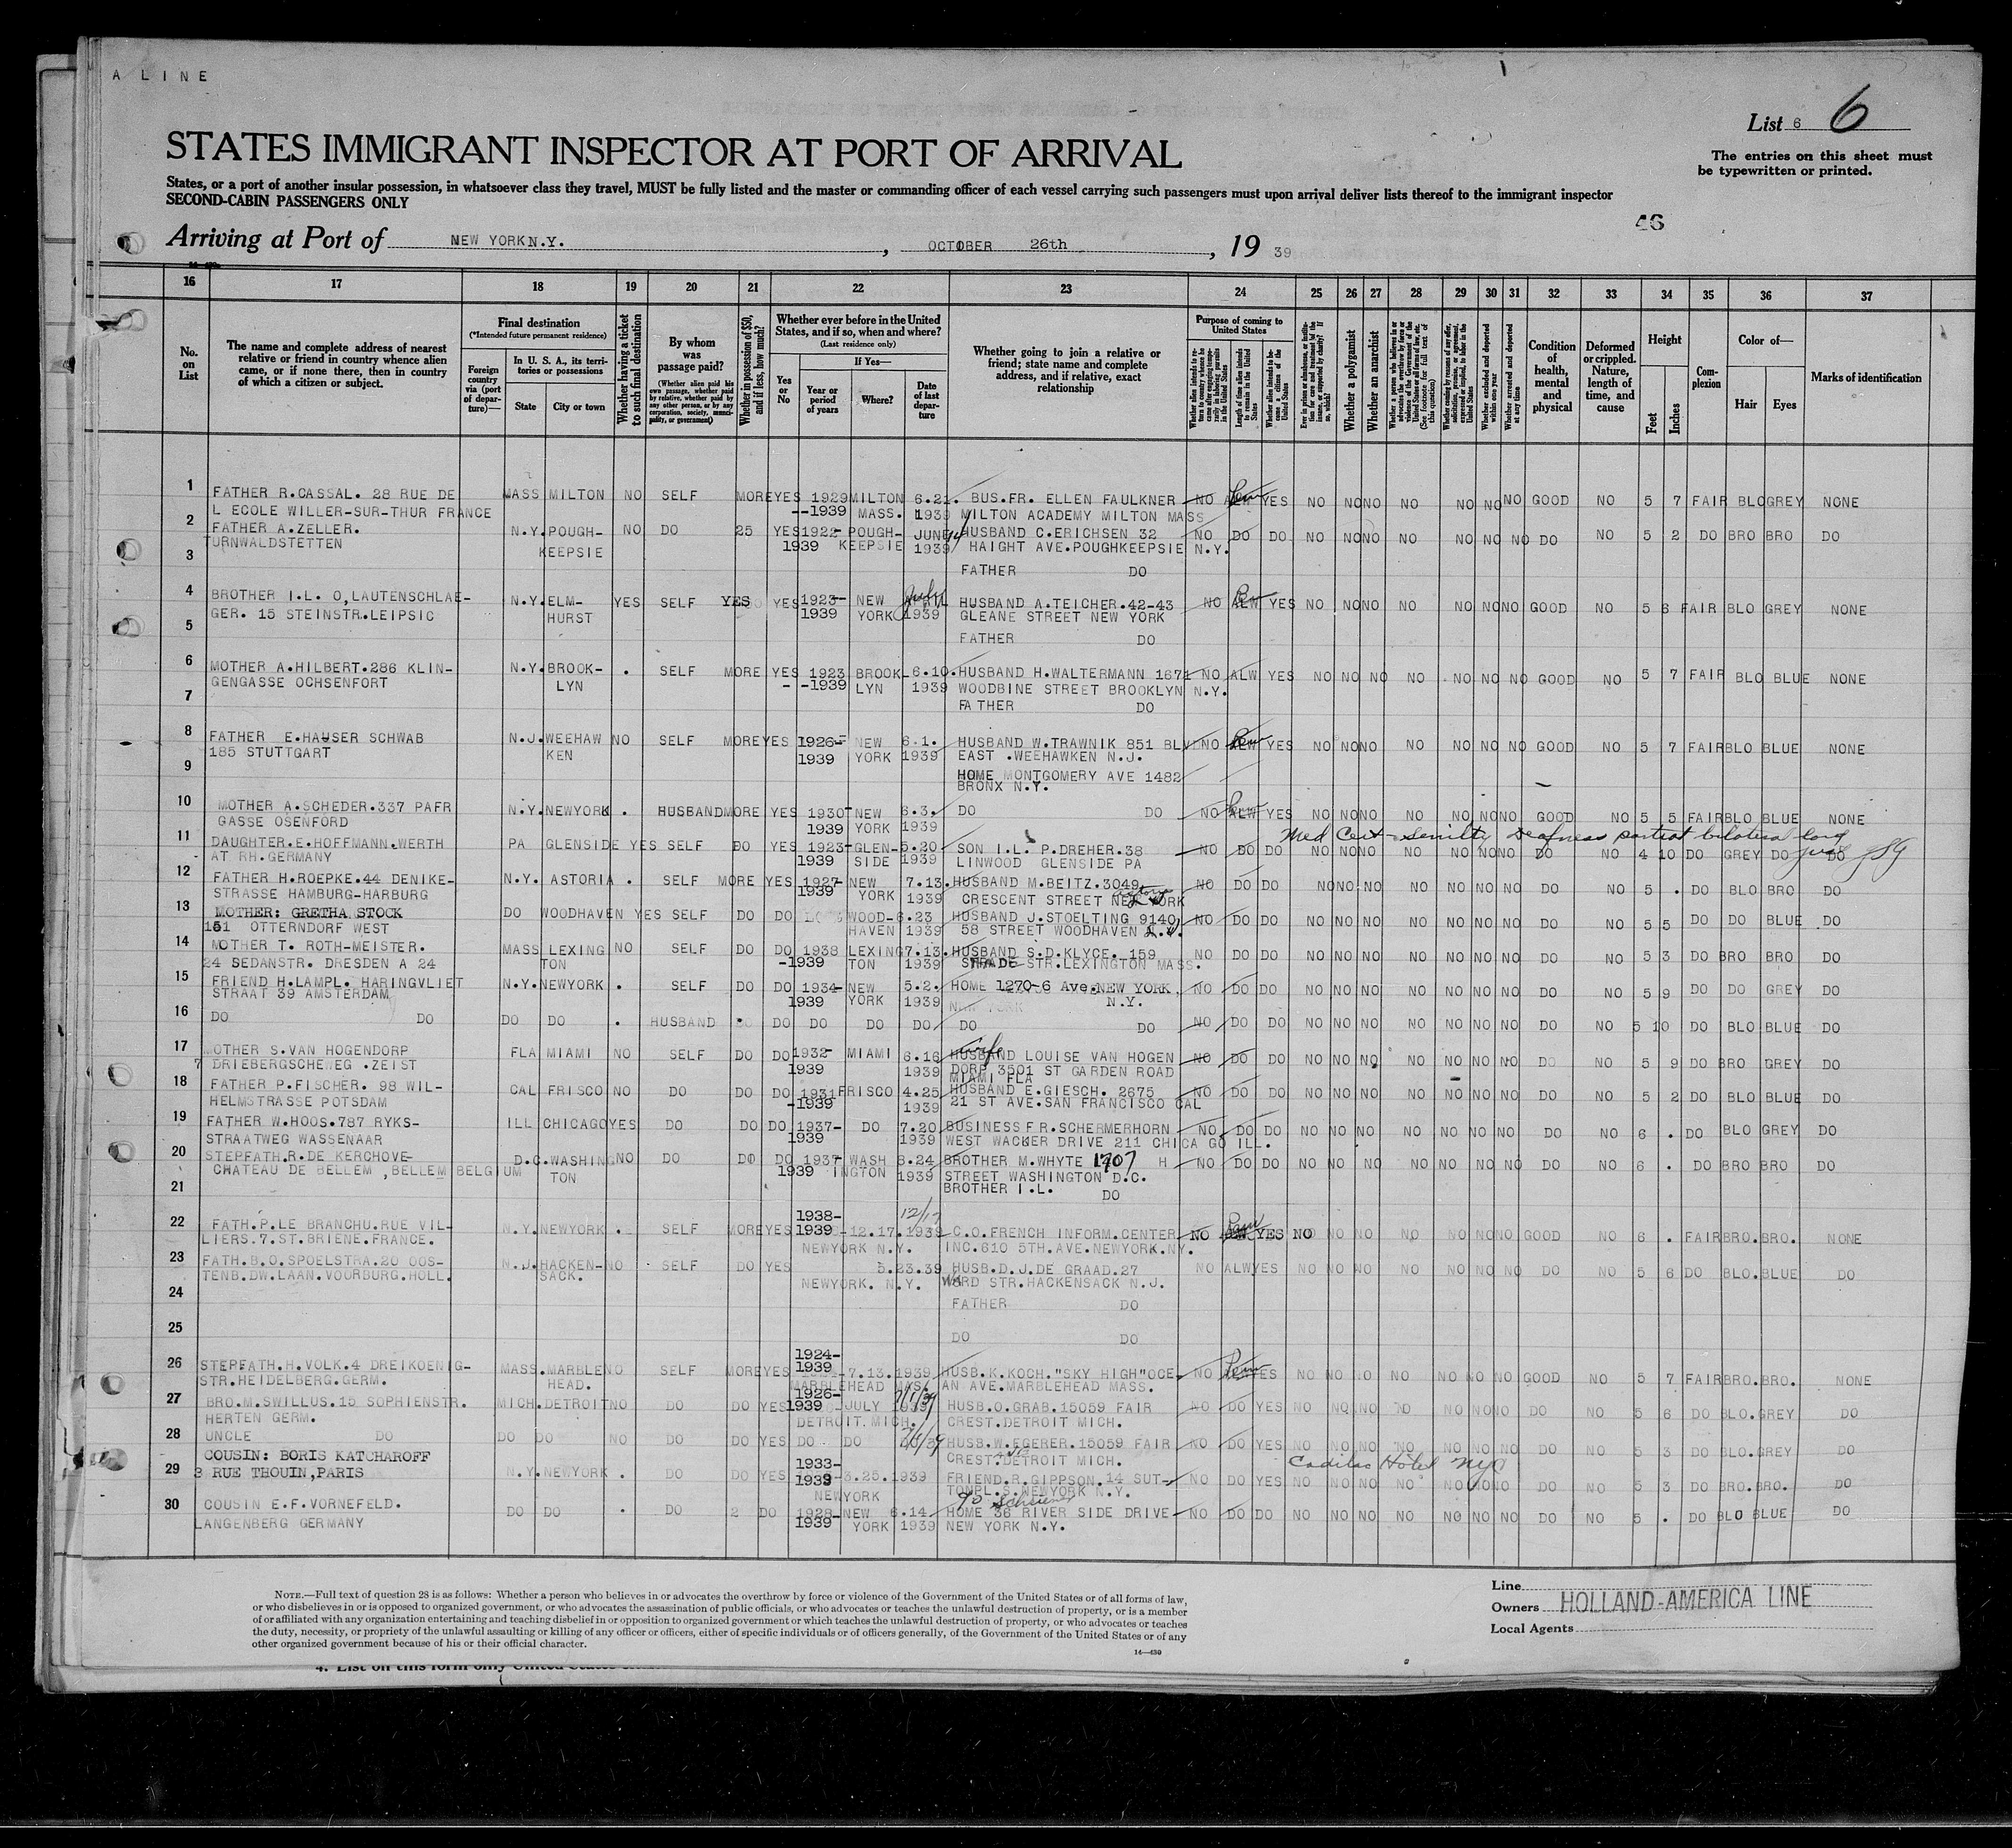 A LINE
List 6 6
STATES IMMIGRANT INSPECTOR AT PORT OF ARRIVAL
The entries on this sheet must
be typewritten or printed.
States, or a port of another insular possession, in whatsoever class they travel, MUST be fully listed and the master or commanding officer of each vessel carrying such passengers must upon arrival deliver lists thereof to the immigrant inspector
SECOND-CABIN PASSENGERS ONLY
46
Arriving at Port of NEW YORK N.Y., OCTOBER 26th, 19 39
16 17 18 19 20 21 22 23 24 25 26 27 28 29 30 31 32 33 34 35 36 37
No. on List
The name and complete address of nearest relative or friend in country whence alien came, or if none there, then in country of which a citizen or subject.
Final destination
(*Intended future permanent residence)
Foreign country via (port of departure)—
In U. S. A., its territories or possessions
State City or town
Whether having a ticket to such final destination
By whom was passage paid?
(Whether alien paid his own passage, whether paid by relative, whether paid by any other person, or by any corporation, society, municipality, or government)
Whether in possession of $50, and if less, how much?
Whether ever before in the United States, and if so, when and where?
(Last residence only)
Yes or No
If Yes—
Year or period of years Where? Date of last departure
Whether going to join a relative or friend; state name and complete address, and if relative, exact relationship
Purpose of coming to United States
Length of time alien intends to remain in the United States
Whether alien intends to become a citizen of the United States
Whether a polygamist
Whether an anarchist
Whether arrested and deported at any time
Condition of health, mental and physical
Deformed or crippled. Nature, length of time, and cause
Height
Feet Inches
Complexion
Color of—
Hair Eyes
Marks of identification
1 FATHER R.CASSAL. 28 RUE DE MASS MILTON NO SELF MORE YES 1929 MILTON 6.21. BUS.FR. ELLEN FAULKNER NO YES NO NO NO NO NO NO NO GOOD NO 5 7 FAIR BLO GREY NONE
L ECOLE WILLER-SUR-THUR FRANCE --1939 MASS. 1939 MILTON ACADEMY MILTON MASS
2 FATHER A.ZELLER. N.Y. POUGH- NO DO 25 YES 1922- POUGH- JUNE 14 HUSBAND C.ERICHSEN 32 NO DO DO NO NO NO NO NO NO NO DO NO 5 2 DO BRO BRO DO
TURNWALDSTETTEN KEEPSIE 1939 KEEPSIE 1939 HAIGHT AVE.POUGHKEEPSIE N.Y.
3 FATHER DO
4 BROTHER I.L. O,LAUTENSCHLAE- N.Y. ELM- YES SELF YES YES 1923- NEW July HUSBAND A.TEICHER.42-43 NO ALW YES NO NO NO NO NO NO NO GOOD NO 5 6 FAIR BLO GREY NONE
GER. 15 STEINSTR.LEIPSIC HURST 1939 YORK 1939 GLEANE STREET NEW YORK
5 FATHER DO
6 MOTHER A.HILBERT.286 KLIN- N.Y. BROOK- . SELF MORE YES 1923 BROOK- 6.10. HUSBAND H.WALTERMANN 1671 NO ALW YES NO NO NO NO NO NO NO GOOD NO 5 7 FAIR BLO BLUE NONE
GENGASSE OCHSENFORT LYN - -1939 LYN 1939 WOODBINE STREET BROOKLYN N.Y.
7 FATHER DO
8 FATHER E.HAUSER SCHWAB N.J. WEEHAW NO SELF MORE YES 1926- NEW 6.1. HUSBAND W.TRAWNIK 851 BLV. NO ALW YES NO NO NO NO NO NO NO GOOD NO 5 7 FAIR BLO BLUE NONE
185 STUTTGART KEN 1939 YORK 1939 EAST .WEEHAWKEN N.J.
9 HOME MONTGOMERY AVE 1482
BRONX N.Y.
10 MOTHER A.SCHEDER.337 PAFR N.Y. NEWYORK . HUSBAND MORE YES 1930- NEW 6.3. DO DO NO ALW YES NO NO NO NO NO NO NO GOOD NO 5 5 FAIR BLO BLUE NONE
GASSE OSENFORD 1939 YORK 1939
Med Cert - senility Deafness partial bilateral
11 DAUGHTER.E.HOFFMANN.WERTH PA GLENSIDE YES SELF DO YES 1923- GLEN- 5.20 SON I.L. P.DREHER.38 NO DO DO NO NO NO NO NO NO NO DO NO 4 10 DO GREY DO DO
AT RH.GERMANY 1939 SIDE 1939 LINWOOD GLENSIDE PA
12 FATHER H.ROEPKE.44 DENIKE- N.Y. ASTORIA . SELF MORE YES 1927- NEW 7.13. HUSBAND M.BEITZ.3049 NO DO DO NO NO NO NO NO NO NO DO NO 5 . DO BLO BRO DO
STRASSE HAMBURG-HARBURG 1939 YORK 1939 CRESCENT STREET NEW YORK
13 MOTHER: GRETHA STOCK DO WOODHAVEN YES SELF DO DO WOOD- 6.23 HUSBAND J.STOELTING 9140 NO DO DO NO NO NO NO NO NO NO DO NO 5 5 DO DO BLUE DO
151 OTTERNDORF WEST HAVEN 1939 58 STREET WOODHAVEN N.Y.
14 MOTHER T. ROTH-MEISTER. MASS LEXING NO SELF DO DO 1938 LEXING 7.13. HUSBAND S.D.KLYCE. 159 NO DO DO NO NO NO NO NO NO NO DO NO 5 3 DO BRO BRO DO
24 SEDANSTR. DRESDEN A 24 TON -1939 TON 1939 STR.LEXINGTON MASS.
15 FRIEND H.LAMPL. HARINGVLIET N.Y. NEWYORK . SELF DO DO 1934- NEW 5.2. HOME 1270-6 Ave.NEW YORK, NO DO DO NO NO NO NO NO NO NO DO NO 5 9 DO DO GREY DO
STRAAT 39 AMSTERDAM 1939 YORK 1939 N.Y.
16 DO DO DO DO . HUSBAND DO DO DO DO DO DO NO DO DO NO NO NO NO NO NO NO DO NO 5 10 DO BLO BLUE DO
17 MOTHER S.VAN HOGENDORP FLA MIAMI NO SELF DO DO 1932- MIAMI 6.16 wife HUSBAND LOUISE VAN HOGEN NO DO DO NO NO NO NO NO NO NO DO NO 5 9 DO BRO GREY DO
7 DRIEBERGSCHEWEG .ZEIST 1939 1939 DORP 3501 ST GARDEN ROAD
MIAMI FLA
18 FATHER P.FISCHER. 98 WIL- CAL FRISCO NO DO DO DO 1931 FRISCO 4.25 HUSBAND E.GIESCH. 2675 NO DO DO NO NO NO NO NO NO NO DO NO 5 2 DO BLO BLUE DO
HELMSTRASSE POTSDAM -1939 1939 21 ST AVE.SAN FRANCISCO CAL
19 FATHER W.HOOS.787 RYKS- ILL CHICAGO YES DO DO DO 1937- DO 7.20 BUSINESS FR.SCHERMERHORN NO DO DO NO NO NO NO NO NO NO DO NO 6 . DO BLO GREY DO
STRAATWEG WASSENAAR 1939 1939 WEST WACKER DRIVE 211 CHICAGO ILL.
20 STEPFATH.R.DE KERCHOVE- D.C. WASHING NO DO DO DO 1937 WASH 6.24 BROTHER M.WHYTE 1707 H NO DO DO NO NO NO NO NO NO NO DO NO 6 . DO BRO BRO DO
CHATEAU DE BELLEM ,BELLEM BELGIUM TON 1939 INGTON 1939 STREET WASHINGTON D.C.
21 BROTHER I.L. DO
22 FATH.P.LE BRANCHU.RUE VIL- N.Y. NEWYORK . SELF MORE YES 1938-1939 12/17 12.17.1939 C.O.FRENCH INFORM.CENTER NO YES NO NO NO NO NO NO NO GOOD NO 6 . FAIR BRO. BRO. NONE
LIERS.7.ST.BRIENE.FRANCE. NEWYORK N.Y. INC.610 5TH.AVE.NEWYORK.NY.
23 FATH.B.O.SPOELSTRA.20 OOS- N.J. HACKEN- NO SELF DO YES 5.23.39 HUSB.D.J.DE GRAAD.27 NO ALW YES NO NO NO NO NO NO NO DO NO 5 6 DO BLO. BLUE DO
TENB.DW.LAAN.VOORBURG.HOLL. SACK. NEWYORK. N.Y. WARD STR.HACKENSACK N.J.
24 FATHER DO
25 DO DO
26 STEPFATH.H.VOLK.4 DREIKOENIG- MASS. MARBLE NO SELF MORE YES 1924-1939 7.13.1939 HUSB.K.KOCH."SKY HIGH"OCE- NO YES NO NO NO NO NO NO NO GOOD NO 5 7 FAIR BRO. BRO. NONE
STR.HEIDELBERG.GERM. HEAD. MARBLEHEAD MAS. AN AVE.MARBLEHEAD MASS.
27 BRO.M.SWILLUS.15 SOPHIENSTR. MICH. DETROIT NO DO DO YES 1926-1939 JULY 7/1/39 HUSB.O.GRAB.15059 FAIR NO DO YES NO NO NO NO NO NO NO DO NO 5 6 DO BLO. GREY DO
HERTEN GERM. DETROIT.MICH. CREST.DETROIT MICH.
28 UNCLE DO DO DO NO DO DO YES DO DO 7/1/39 HUSB.W.EGERER.15059 FAIR NO DO YES NO NO NO NO NO NO NO DO NO 5 3 DO BLO. GREY DO
CREST.DETROIT MICH.
Cadilac Hotel NYC
29 COUSIN: BORIS KATCHAROFF N.Y. NEWYORK . DO DO YES 1933-1939 3.25.1939 FRIEND.R.GIPPSON.14 SUT- NO DO YES NO NO NO NO NO NO NO DO NO 5 3 DO BRO. BRO. DO
3 RUE THOUIN,PARIS NEWYORK TONPL.S.NEWYORK N.Y.
30 COUSIN E.F.VORNEFELD. DO DO . DO 2 DO 1928- NEW 6.14. HOME 36 RIVER SIDE DRIVE NO DO DO NO NO NO NO NO NO NO DO NO 5 . DO BLO BLUE DO
LANGENBERG GERMANY 1939 YORK 1939 NEW YORK N.Y.
NOTE.—Full text of question 28 is as follows: Whether a person who believes in or advocates the overthrow by force or violence of the Government of the United States or of all forms of law,
or who disbelieves in or is opposed to organized government, or who advocates the assassination of public officials, or who advocates or teaches the unlawful destruction of property, or is a member
of or affiliated with any organization entertaining and teaching disbelief in or opposition to organized government or which teaches the unlawful destruction of property, or who advocates or teaches
the duty, necessity, or propriety of the unlawful assaulting or killing of any officer or officers, either of specific individuals or of officers generally, of the Government of the United States or of any
other organized government because of his or their official character.
14—430
Line
Owners HOLLAND-AMERICA LINE
Local Agents
4. List on this form only United States